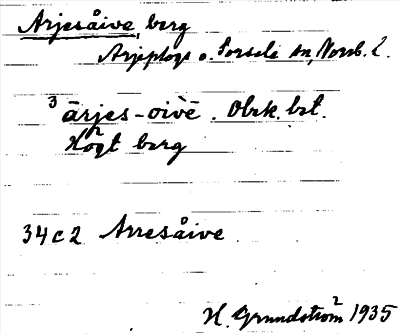 Arjesåive, berg
Arjeplogs o. Sorsele sn, Norrb. L.
³ārjes-oivē. Obek. bet.
Högt berg
34c2 Arresåive
H. Grundström 1935